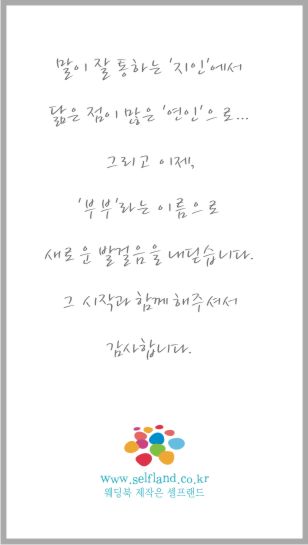 말이 잘 통하는 '지인'에서
닮은 점이 많은 '연인'으로...
그리고 이제,
'부부'라는 이름으로
새로운 발걸음을 내딛습니다.
그 시작과 함께 해주셔서
감사합니다.
www.selfland.co.kr
웨딩북 제작은 셀프랜드